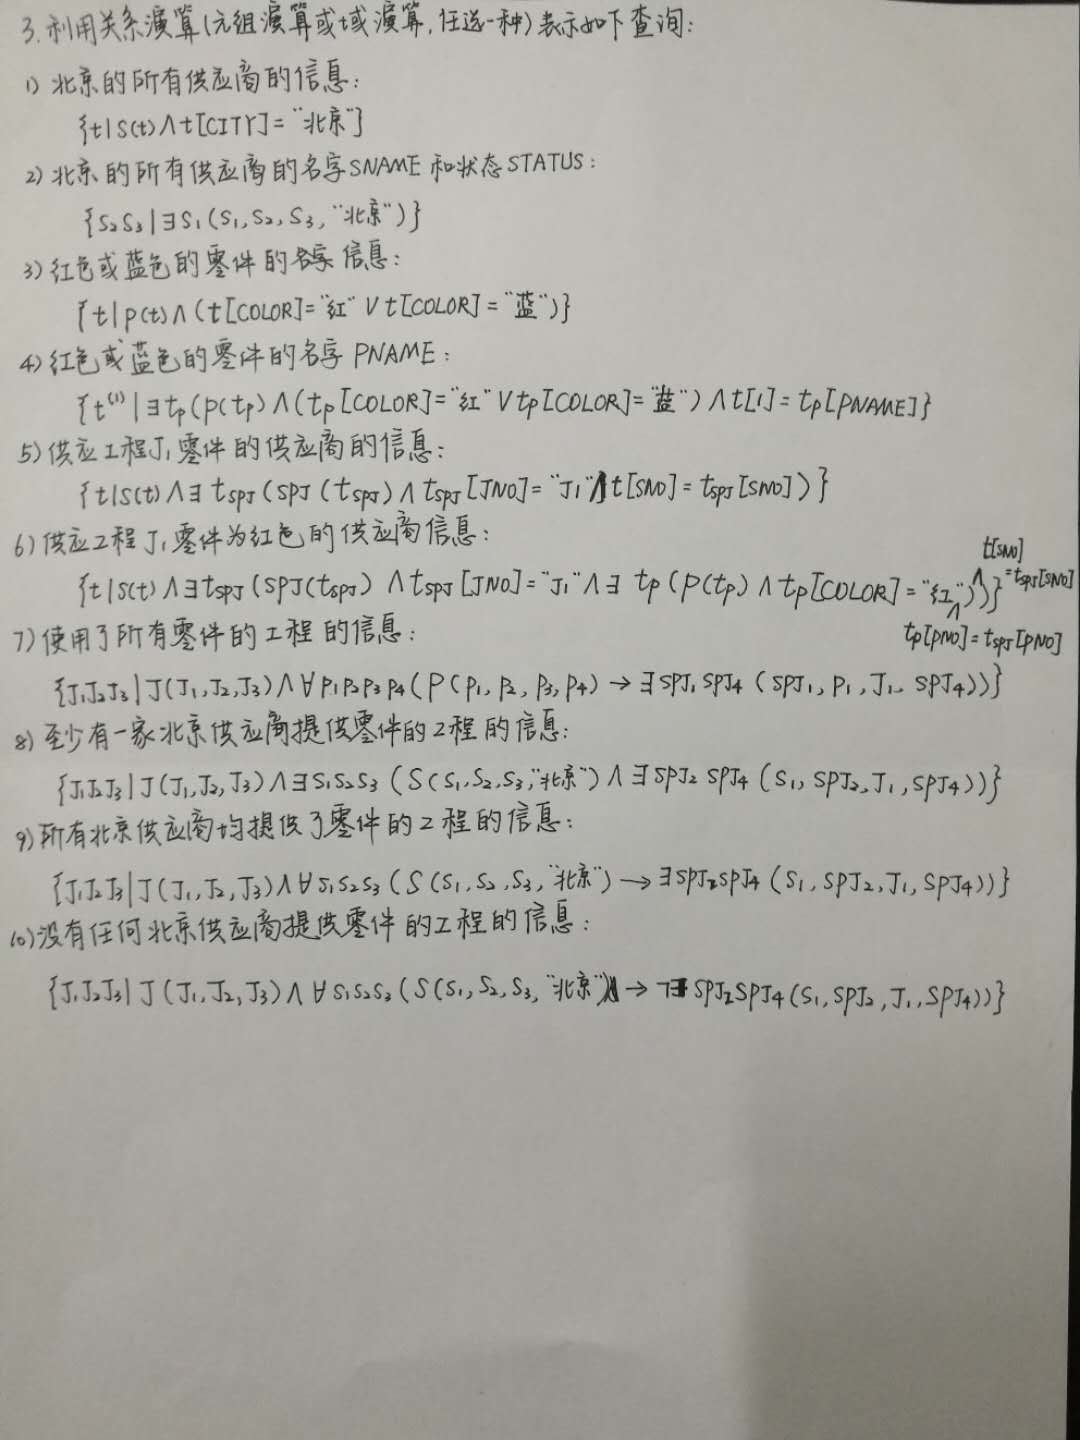 3.利用关系演算(元组演算或域演算,任选一种)表示如下查询:
1) 北京的所有供应商的信息:
{t|S(t)∧t[CITY]="北京"}
2) 北京的所有供应商的名字SNAME和状态STATUS:
{S₂S₃|∃S₁(S₁,S₂,S₃,"北京")}
3) 红色或蓝色的零件的信息:
{t|P(t)∧(t[COLOR]="红"∨t[COLOR]="蓝")}
4) 红色或蓝色的零件的名字PNAME:
{t⁽¹⁾|∃tp(P(tp)∧(tp[COLOR]="红"∨tp[COLOR]="蓝")∧t[1]=tp[PNAME]}
5) 供应工程J₁零件的供应商的信息:
{t|S(t)∧∃tSPJ(SPJ(tSPJ)∧tSPJ[JNO]="J₁"∧t[SNO]=tSPJ[SNO])}
6) 供应工程J₁零件为红色的供应商信息:
{t|S(t)∧∃tSPJ(SPJ(tSPJ)∧tSPJ[JNO]="J₁"∧∃tp(P(tp)∧tp[COLOR]="红"∧tp[PNO]=tSPJ[PNO])∧t[SNO]=tSPJ[SNO])}
7) 使用了所有零件的工程的信息:
{J₁J₂J₃|J(J₁,J₂,J₃)∧∀P₁P₂P₃P₄(P(P₁,P₂,P₃,P₄)→∃SPJ₁SPJ₄(SPJ₁,P₁,J₁,SPJ₄))}
8) 至少有一家北京供应商提供零件的工程的信息:
{J₁J₂J₃|J(J₁,J₂,J₃)∧∃S₁S₂S₃(S(S₁,S₂,S₃,"北京")∧∃SPJ₂SPJ₄(S₁,SPJ₂,J₁,SPJ₄))}
9) 所有北京供应商均提供了零件的工程的信息:
{J₁J₂J₃|J(J₁,J₂,J₃)∧∀S₁S₂S₃(S(S₁,S₂,S₃,"北京")→∃SPJ₂SPJ₄(S₁,SPJ₂,J₁,SPJ₄))}
10) 没有任何北京供应商提供零件的工程的信息:
{J₁J₂J₃|J(J₁,J₂,J₃)∧∀S₁S₂S₃(S(S₁,S₂,S₃,"北京")→¬∃SPJ₂SPJ₄(S₁,SPJ₂,J₁,SPJ₄))}